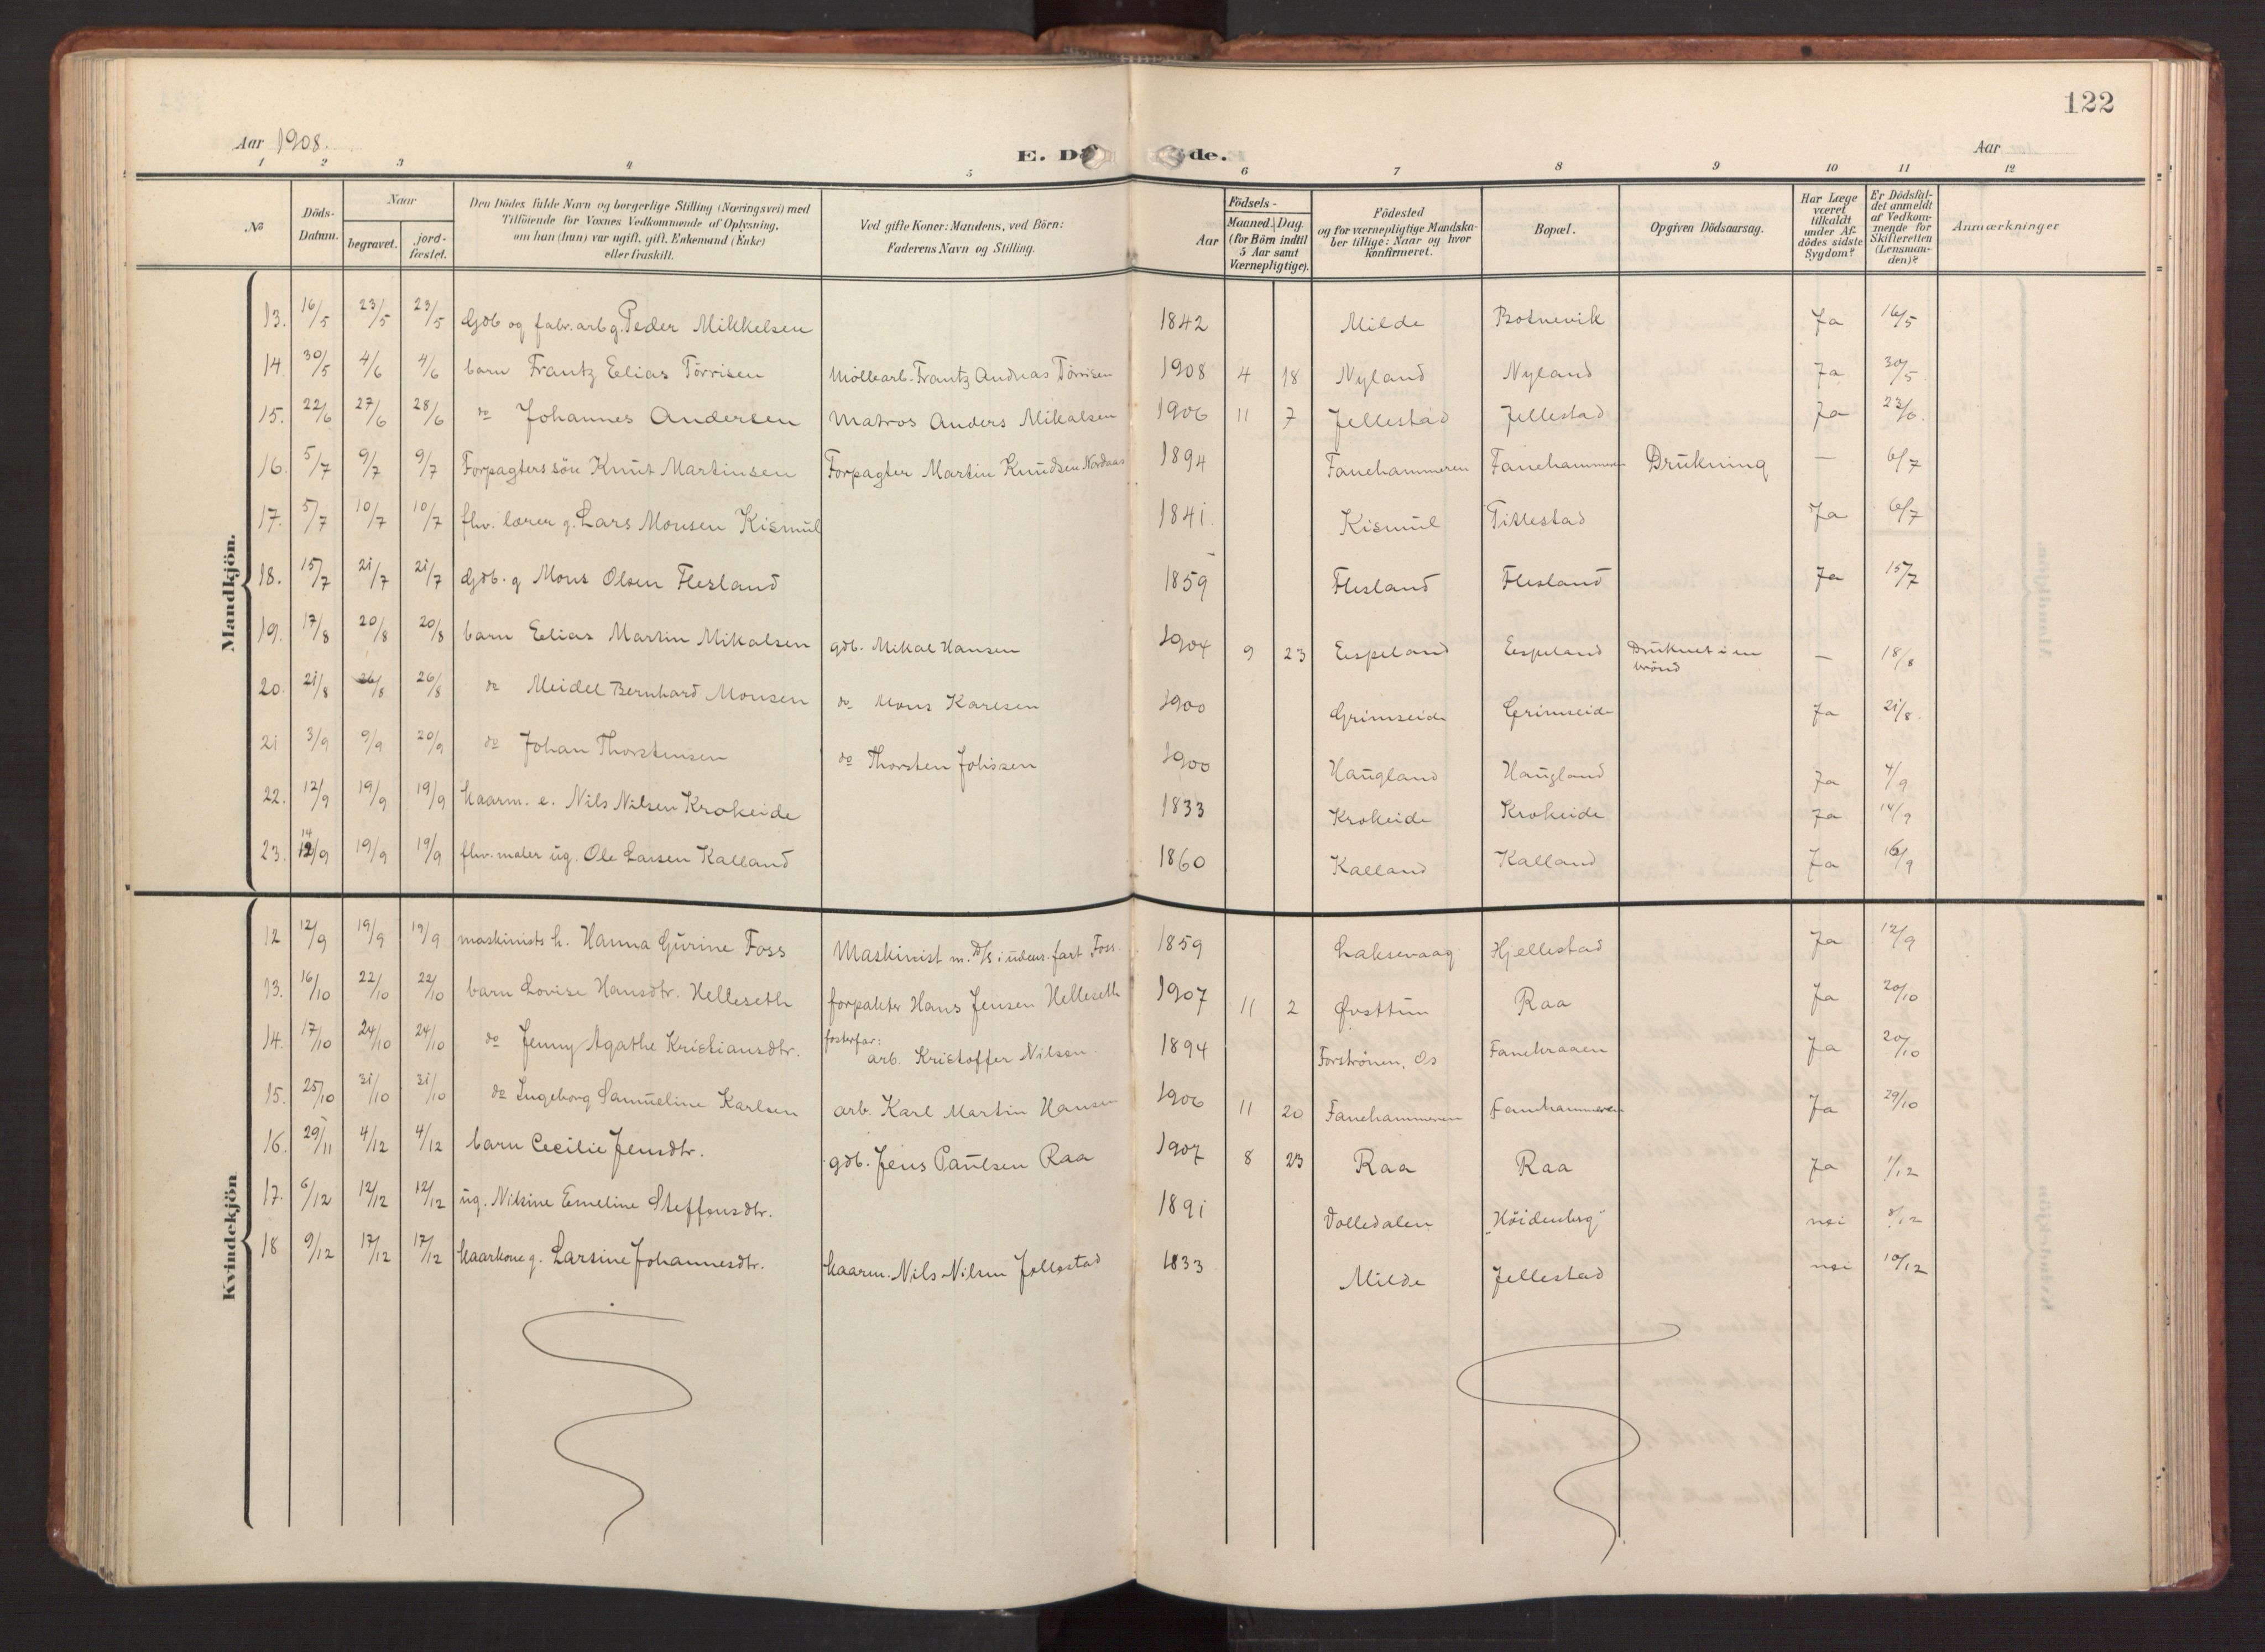 122
Aar 1908.
E. Dö de.
Aar
1 2 3 4 5 6 7 8 9 10 11 12
No
Döds-
Datum.
Naar
begravet.
jord-
fæstet.
Den Dödes fulde Navn og borgerlige Stilling (Næringsvei) med
Tilföiende for Voxnes Vedkommende af Oplysning,
om han (hun) var ugift, gift, Enkemand (Enke)
eller fraskilt.
Ved gifte Koner: Mandens, ved Börn:
Faderens Navn og Stilling.
Aar
Födsels-
Maaned. Dag.
(for Börn indtil
5 Aar samt
Værnepligtige).
Födested
og for værnepligtige Mandska-
ber tillige: Naar og hvor
konfirmeret.
Bopæl.
Opgiven Dödsaarsag.
Har Læge
været
tilkaldt
under Af-
dödes sidste
Sygdom?
Er Dödsfal-
det anmeldt
af Vedkom-
mende for
Skifteretten
(Lensman-
den)?
Anmærkninger
Mandkjön.
13. 16/5 23/5 23/5 Gdb og fabr.arb g. Peder Mikkelsen 1842 Milde Botnevik Ja 16/5
14. 30/5 4/6 4/6 barn Frantz Elias Törrisen Möllearb. Frantz Andreas Törrisen 1908 4 18 Nyland Nyland Ja 30/5
15. 22/6 27/6 28/6 do Johannes Andersen Matros Anders Mikalsen 1906 11 7 Jellestad Jellestad Ja 23/6.
16. 5/7 9/7 9/7 Forpagters sön Knut Martinsen Forpagter Martin Knudsen Nordaas 1894 Fanehammeren Fanehammeren Drukning — 6/7
17. 5/7 10/7 10/7 fhv. lærer g. Lars Monsen Kismul 1841. Kismul Tittestad Ja 6/7
18. 15/7 21/7 21/7 Gdb. g Mons Olsen Flesland 1859 Flesland Flesland Ja 15/7
19. 17/8 20/8 20/8 barn Elias Martin Mikalsen gdb. Mikal Hansen 1904 9 23 Espeland Espeland Druknet i en
brönd — 18/8
20. 21/8 26/8 26/8 do Meidel Bernhard Monsen do Mons Karlsen 1900 Grimseide Grimseide Ja 21/8.
21 3/9 9/9 20/9 do Johan Thorstensen do Thorsten Johssen 1900 Haugland Haugland Ja 4/9
22. 12/9 19/9 19/9 kaarm. e. Nils Nilsen Krokeide 1833 Krokeide Krokeide Ja 14/9
23. 14/9 19/9 19/9 fhv. maler ug. Ole Larsen Kalland 1860 Kalland Kalland Ja 16/9
Kvindekjön
12 12/9 19/9 19/9 maskinists h. Hanna Gurine Foss Maskinist m. D/S i udenr. fart Foss. 1859 Laksevaag Hjellestad Ja 12/9
13. 16/10 22/10 22/10 barn Lovise Hansdtr. Helleseth forpakter Hans Jensen Helleseth 1907 11 2 Øvsttun Raa Ja 20/10
14. 17/10 24/10 24/10 do Jenny Agathe Kristiansdtr. fosterfar:
arb. Kristoffer Nilsen. 1894 Forströnen, Os Fanehraaen Ja 20/10
15. 25/10 31/10 31/10 do Ingeborg Samueline Karlsen arb. Karl Martin Hansen 1906 11 20 Fanehammeren Fanehammeren Ja 29/10
16. 29/11 4/12 4/12 barn Cecilie Jensdtr. gdb. Jens Paulsen Raa 1907 8 23 Raa Raa Ja 1/12
17. 6/12 12/12 12/12 ug. Nilsine Emeline Steffensdtr. 1891 Dolledalen "Höidenberg" nei 8/12
18 9/12 17/12 17/12 kaarkone g. Larsine Johannesdtr. kaarm. Nils Nilsen Jellestad 1833 Milde Jellestad nei 10/12